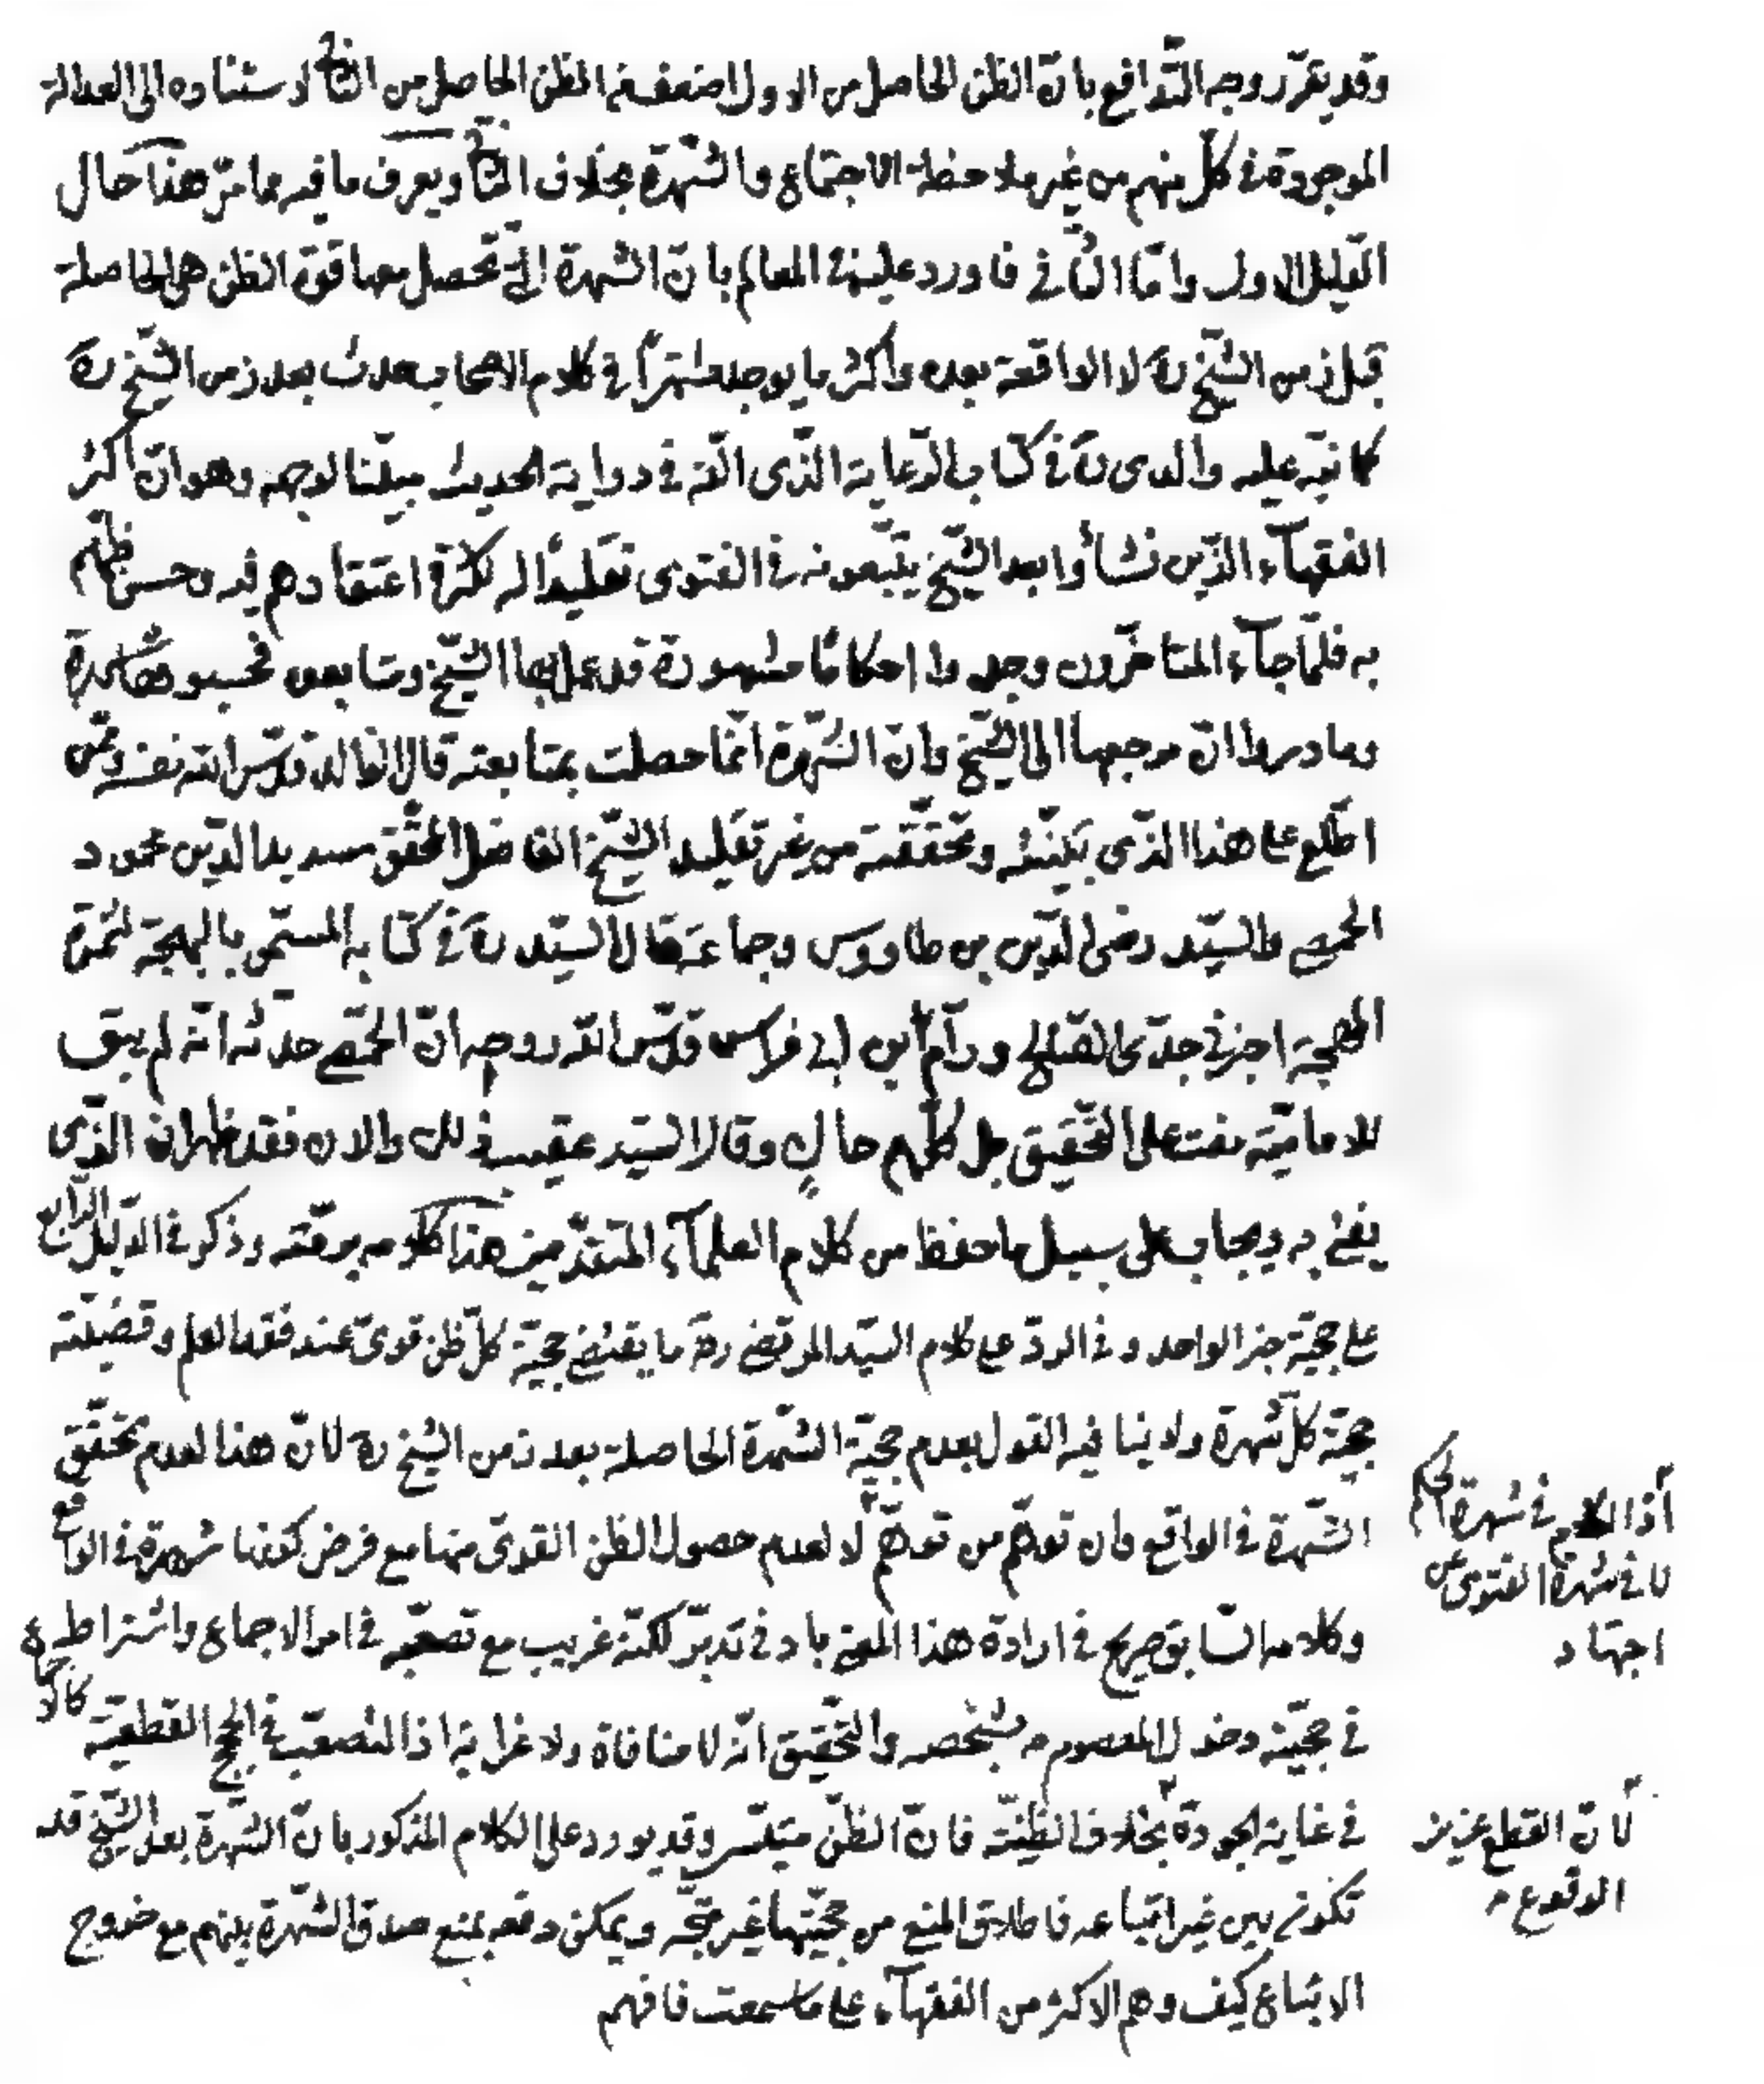 وقد يقرّر وجه التّدافع بانّ الظن الحاصل من الاول اضعف من الظن الحاصل من الثاني لاستناده الى العدالة
الموجودة في كلّ منهم من غير ملاحظة الاجتماع والشّهرة بخلاف الثاني ويعرف ما فيه مما مرّ هذا حال
الدّليل الاول وامّا الثّاني فاورد عليه في المعالم بانّ الشهرة الّتي تحصل معها قوّة الظن هي الحاصلة
قبل زمن الشّيخ رة لا الواقعة بعده واكثر ما يوجد مشتهرًا في كلام الاصحاب حدث بعد زمن الشّيخ رة
كما نبّه عليه والدى رة في كتاب الرّعاية الّذى الّفه في دراية الحديث مبيّنا لوجهه وهو انّ اكثر
الفقهآء الّذين نشأوا بعد الشّيخ يتّبعونه في الفتوى تقليدًا له لكثرة اعتقادهم فيه وحسن ظنّهم
به فلمّا جآء المتاخّرون وجدوا احكامًا مشهورة قد عمل بها الشّيخ ومتابعوه فحسبوها شهرة
وما دروا انّ مرجعها الى الشّيخ وانّ الشّهرة انّما حصلت بمتابعته قال الوالد قدّس الله نفسه وممّن
اطّلع على هذا الّذى بيّنته وتحقّقته من غير تقليد الشّيخ الفاضل المحقّق سديد الدّين محمود
الحمصي والسّيّد رضى الدّين بن طاووس وجماعة قال السّيّد رة في كتابه المسمّى بالبهجة لثمرة
المهجة اخبرني جدّى الصّالح ورّام ابن ابي فراس قدّس الله روحه انّ الحمّصي حدّثه انّه لم يبق
للاماميّة مفت على التّحقيق بل كلّهم حاكٍ وقال السّيّد عقيب ذلك والان فقد ظهر ان الّذى
يفتي به ويجاب على سبيل ما حفظ من كلام العلمآء المتقدّمين هذا كلامه برمّته وذكر في الدّليل الرّابع
على حجيّة خبر الواحد و في الردّ على كلام السّيّد المرتضى رة ما يقتضي حجيّة كلّ ظن قوىّ عند فقد العلم وقضيّته
حجيّة كلّ شهرة ولا ينافيه القول بعدم حجيّة الشّهرة الحاصلة بعد زمن الشّيخ رة لانّ هذا لعدم تحقّق
الشّهرة في الواقع وان توهّم من توهّم لا لعدم حصول الظن القوىّ منها مع فرض كونها شهرة في الواقع
وكلامه السّابق صريح في ارادة هذا المعنى بادنى تدبّر لكنّه غريب مع تصعّبه في امر الاجماع واشتراطه
في حجيّته دخول المعصوم م بشخصه والتّحقيق انّه لا منافاة ولا غرابة اذ التصعّب في الحجج القطعيّة كالاجماع
في غاية الجودة بخلاف الظنيّة فانّ الظنّ متيسّر وقد يورد على الكلام المذكور بانّ الشّهرة بعد الشّيخ قد
تكون بين غير اتباعه فاطلاق المنع من حجيّتها غير متجّه ويمكن دفعه بمنع صدق الشّهرة بينهم مع خروج
الاتباع كيف وهم الاكثر من الفقهآء على ما سمعت فافهم
اذ الكلام في شهرة الحكم
لا في شهرة الفتوى عن
اجتهاد
لانّ القطع عزيز
الوقوع م